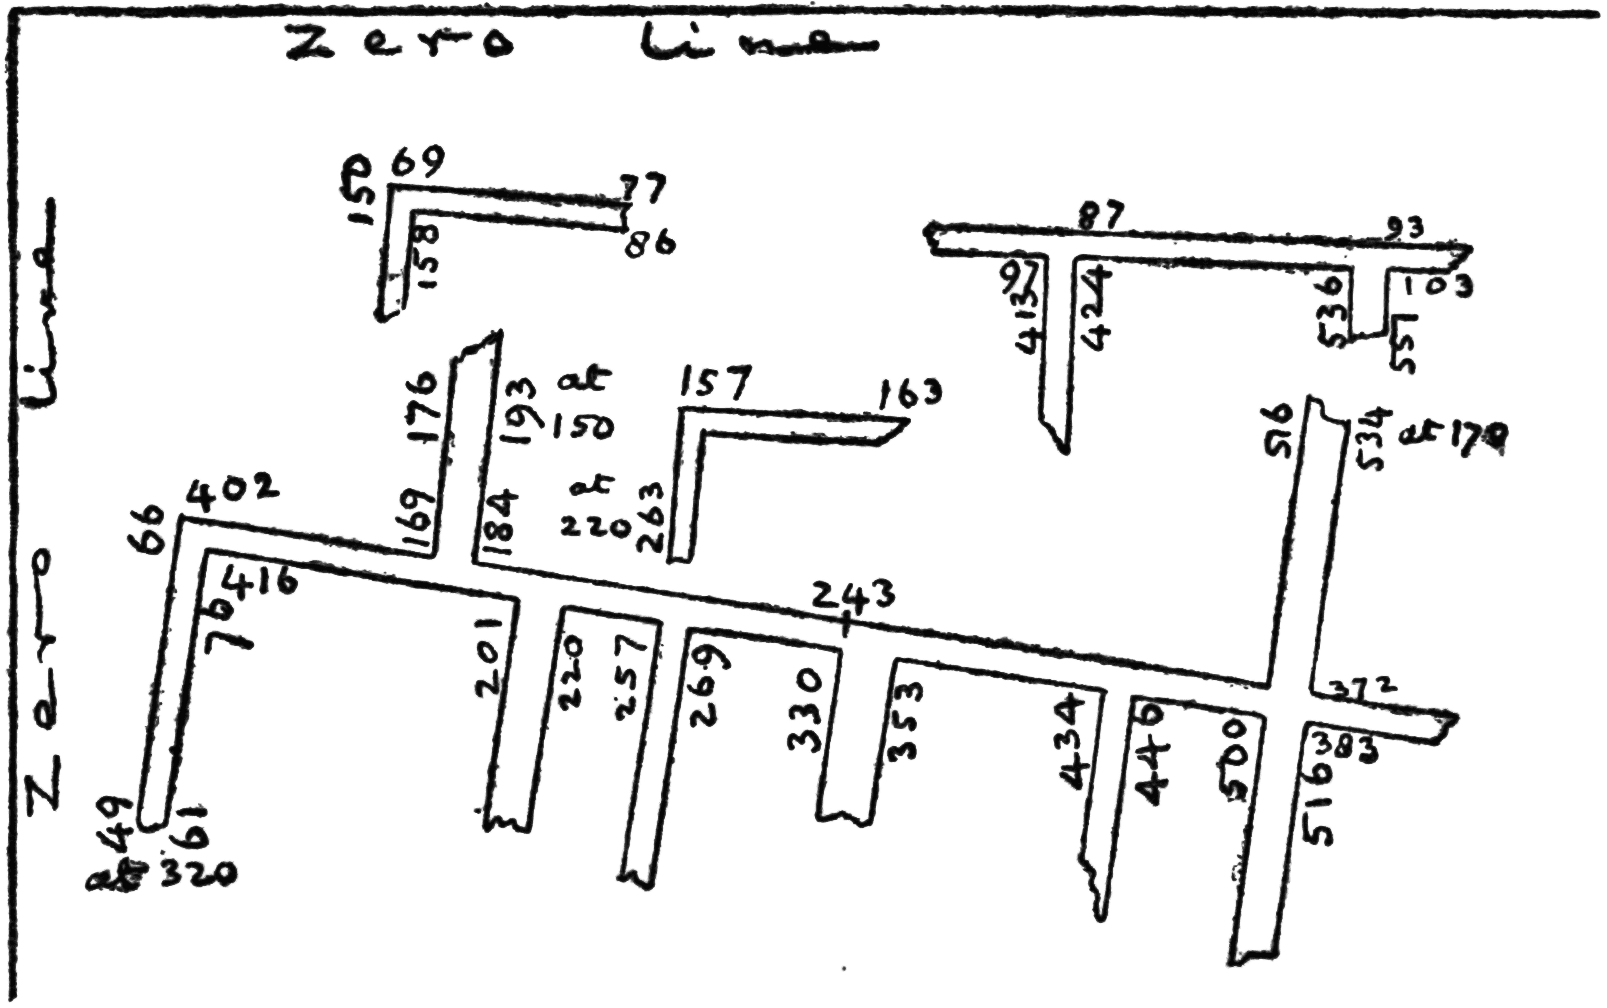 Zero Line
Zero Line
150
69
77
158
86
87
93
97
413
424
536
103
551
176
193
at
150
157
163
516
534
at 170
66
402
169
184
at
220
263
416
76
201
220
257
269
243
330
353
434
446
500
372
383
516
49
61
at 320